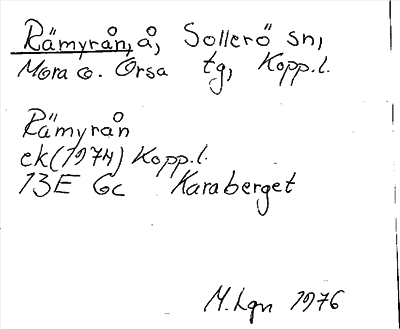 Rämyrån, å, Sollerö sn,
Mora o. Orsa tg, Kopp.l.
Rämyrån
ek(1974) Kopp.l.
13E 6c Karaberget
M.Lgn 1976